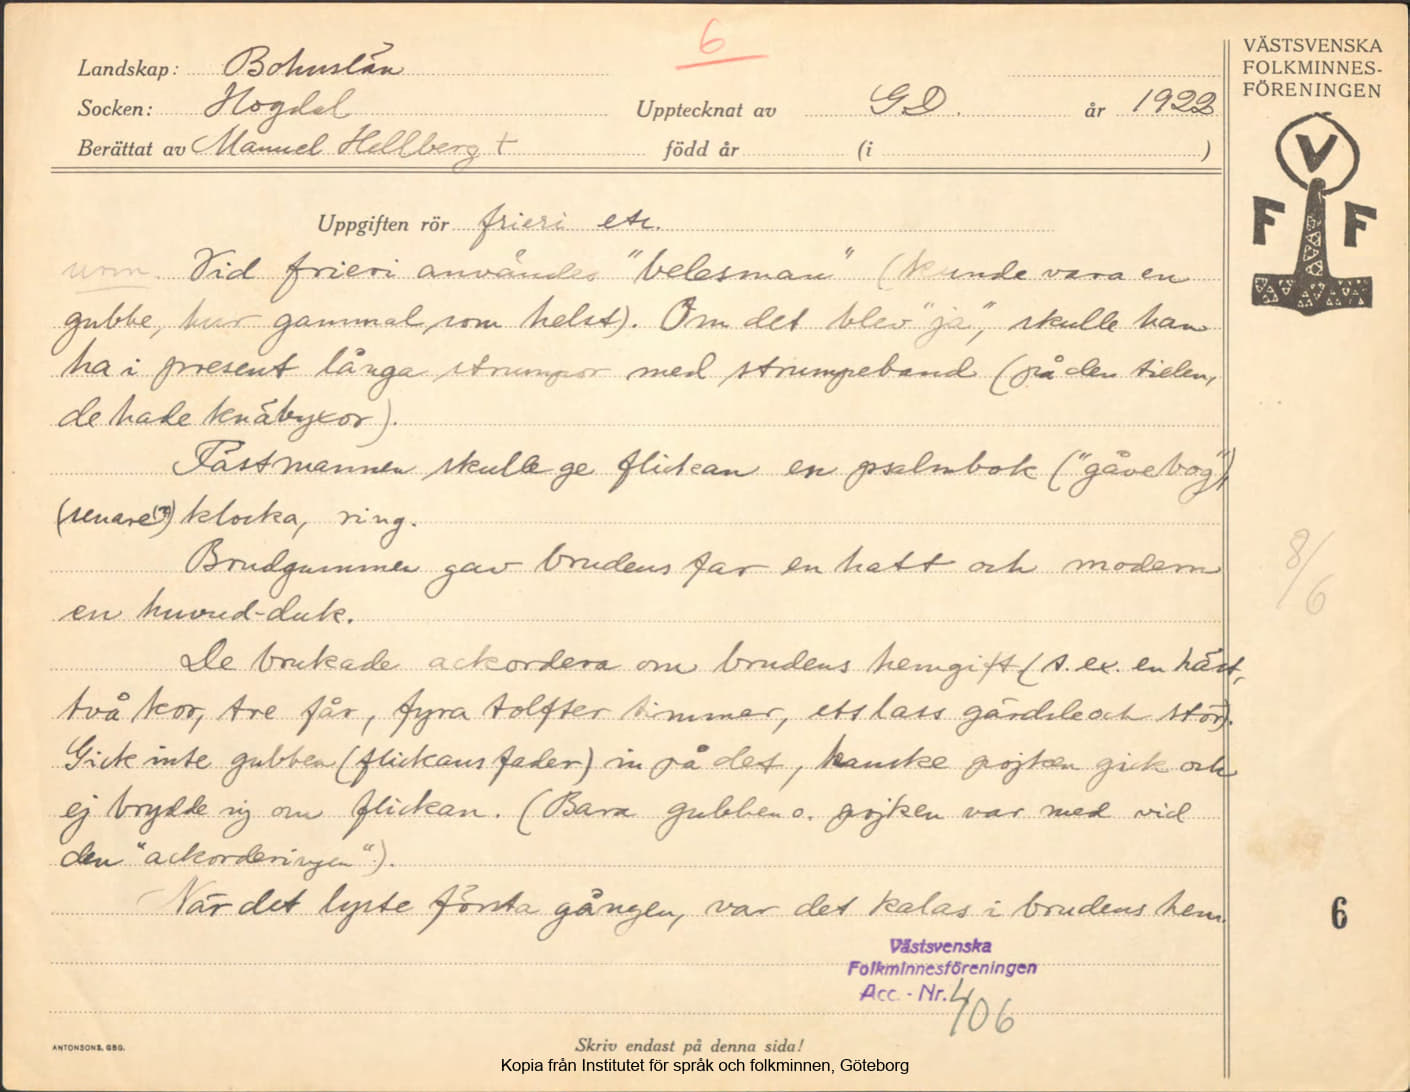 6
VÄSTSVENSKA
FOLKMINNES-
FÖRENINGEN
V
F F
Landskap: Bohuslän
Socken: Hogdal Upptecknat av G.D. år 1922
Berättat av Manuel Hellberg † född år (i )
Uppgiften rör frieri etc.
Vid frieri användes "belesman" (kunde vara en
gubbe, hur gammal som helst). Om det blev "ja", skulle han
ha i present långa strumpor med strumpeband (på den tiden,
de hade knäbyxor).
Fästmannen skulle ge flickan en psalmbok ("gåvebog"),
(senare(?)) klocka, ring.
Brudgummen gav brudens far en hatt och modern
en huvud-duk.
De brukade ackordera om brudens hemgift (t. ex. en häst,
två kor, tre får, fyra tolfter timmer, ett lass gärdsle och stör).
Gick inte gubben (flickans fader) in på det, kanske pojken gick och
ej brydde sig om flickan. (Bara gubben o. pojken var med vid
den "ackorderingen").
När det lyste första gången, var det kalas i brudens hem.
8/6
6
Västsvenska
Folkminnesföreningen
Acc. - Nr. 406
ANTONSONS, GBG.
Skriv endast på denna sida!
Kopia från Institutet för språk och folkminnen, Göteborg